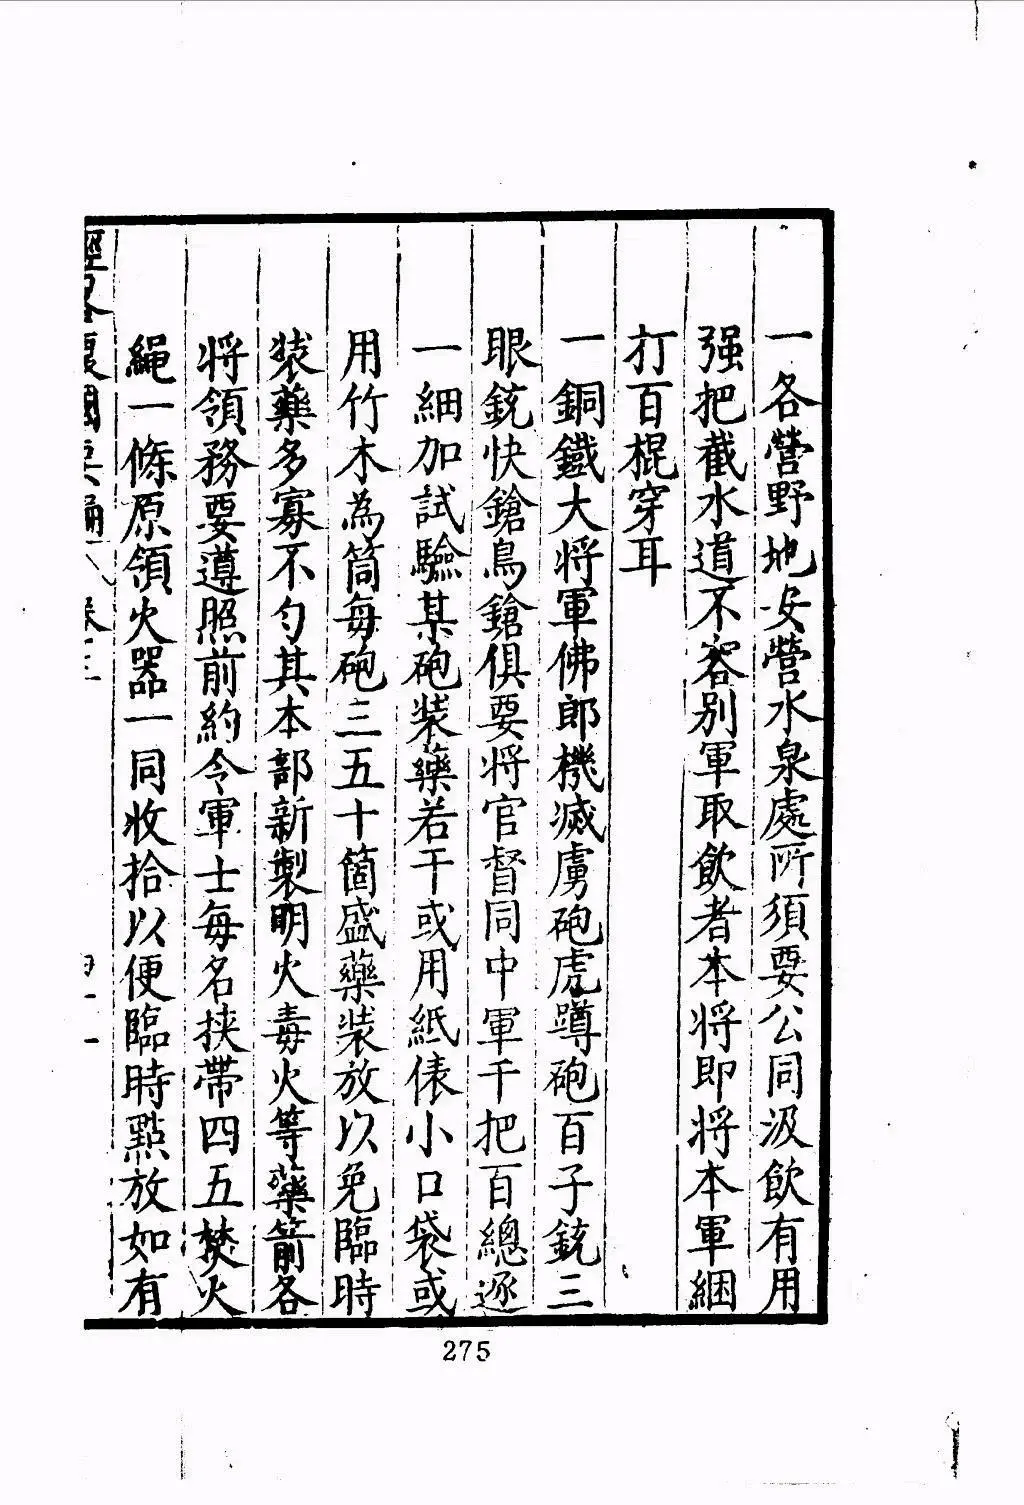 一各營野地安營水泉處所須要公同汲飲有用
强把截水道不容别軍取飲者本将即将本軍綑
打百棍穿耳
一銅鐵大将軍佛郎機滅虜砲虎蹲砲百子銃三
眼銃快鎗鳥鎗俱要将官督同中軍千把百總逐
一細加試驗某砲装藥若干或用紙俵小口袋或
用竹木為筒每砲三五十箇盛藥装放以免臨時
装藥多寡不勻其本部新製明火毒火等藥箭各
将領務要遵照前約令軍士每名挟帶四五焚火
繩一條原領火器一同收拾以便臨時點放如有
經畧復國要編 卷三
275